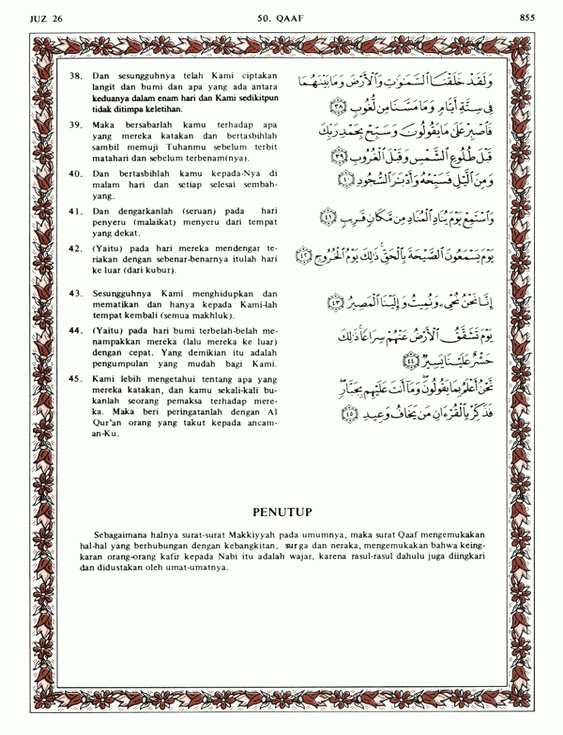 JUZ 26 50. QAAF 855
38. Dan sesungguhnya telah Kami ciptakan
langit dan bumi dan apa yang ada antara
keduanya dalam enam hari dan Kami sedikitpun
tidak ditimpa keletihan.
39. Maka bersabarlah kamu terhadap apa
yang mereka katakan dan bertasbihlah
sambil memuji Tuhanmu sebelum terbit
matahari dan sebelum terbenam(nya).
40. Dan bertasbihlah kamu kepada-Nya di
malam hari dan setiap selesai sembah-
yang.
41. Dan dengarkanlah (seruan) pada hari
penyeru (malaikat) menyeru dari tempat
yang dekat.
42. (Yaitu) pada hari mereka mendengar te-
riakan dengan sebenar-benarnya itulah hari
ke luar (dari kubur).
43. Sesungguhnya Kami menghidupkan dan
mematikan dan hanya kepada Kami-lah
tempat kembali (semua makhluk).
44. (Yaitu) pada hari bumi terbelah-belah me-
nampakkan mereka (lalu mereka ke luar)
dengan cepat. Yang demikian itu adalah
pengumpulan yang mudah bagi Kami.
45. Kami lebih mengetahui tentang apa yang
mereka katakan, dan kamu sekali-kali bu-
kanlah seorang pemaksa terhadap mere-
ka. Maka beri peringatanlah dengan Al
Qur'an orang yang takut kepada ancam-
an-Ku.
وَلَقَدْ خَلَقْنَا السَّمَٰوَٰتِ وَالْأَرْضَ وَمَا بَيْنَهُمَا
فِي سِتَّةِ أَيَّامٍ وَمَا مَسَّنَا مِن لُّغُوبٍ ﴿٣٨﴾
فَاصْبِرْ عَلَىٰ مَا يَقُولُونَ وَسَبِّحْ بِحَمْدِ رَبِّكَ
قَبْلَ طُلُوعِ الشَّمْسِ وَقَبْلَ الْغُرُوبِ ﴿٣٩﴾
وَمِنَ اللَّيْلِ فَسَبِّحْهُ وَأَدْبَٰرَ السُّجُودِ ﴿٤٠﴾
وَاسْتَمِعْ يَوْمَ يُنَادِ الْمُنَادِ مِن مَّكَانٍ قَرِيبٍ ﴿٤١﴾
يَوْمَ يَسْمَعُونَ الصَّيْحَةَ بِالْحَقِّ ۚ ذَٰلِكَ يَوْمُ الْخُرُوجِ ﴿٤٢﴾
إِنَّا نَحْنُ نُحْيِۦ وَنُمِيتُ وَإِلَيْنَا الْمَصِيرُ ﴿٤٣﴾
يَوْمَ تَشَقَّقُ الْأَرْضُ عَنْهُمْ سِرَاعًا ۚ ذَٰلِكَ
حَشْرٌ عَلَيْنَا يَسِيرٌ ﴿٤٤﴾
نَّحْنُ أَعْلَمُ بِمَا يَقُولُونَ ۖ وَمَا أَنتَ عَلَيْهِم بِجَبَّارٍ ۖ
فَذَكِّرْ بِالْقُرْءَانِ مَن يَخَافُ وَعِيدِ ﴿٤٥﴾
PENUTUP
Sebagaimana halnya surat-surat Makkiyyah pada umumnya, maka surat Qaaf mengemukakan
hal-hal yang berhubungan dengan kebangkitan, surga dan neraka, mengemukakan bahwa keing-
karan orang-orang kafir kepada Nabi itu adalah wajar, karena rasul-rasul dahulu juga diingkari
dan didustakan oleh umat-umatnya.